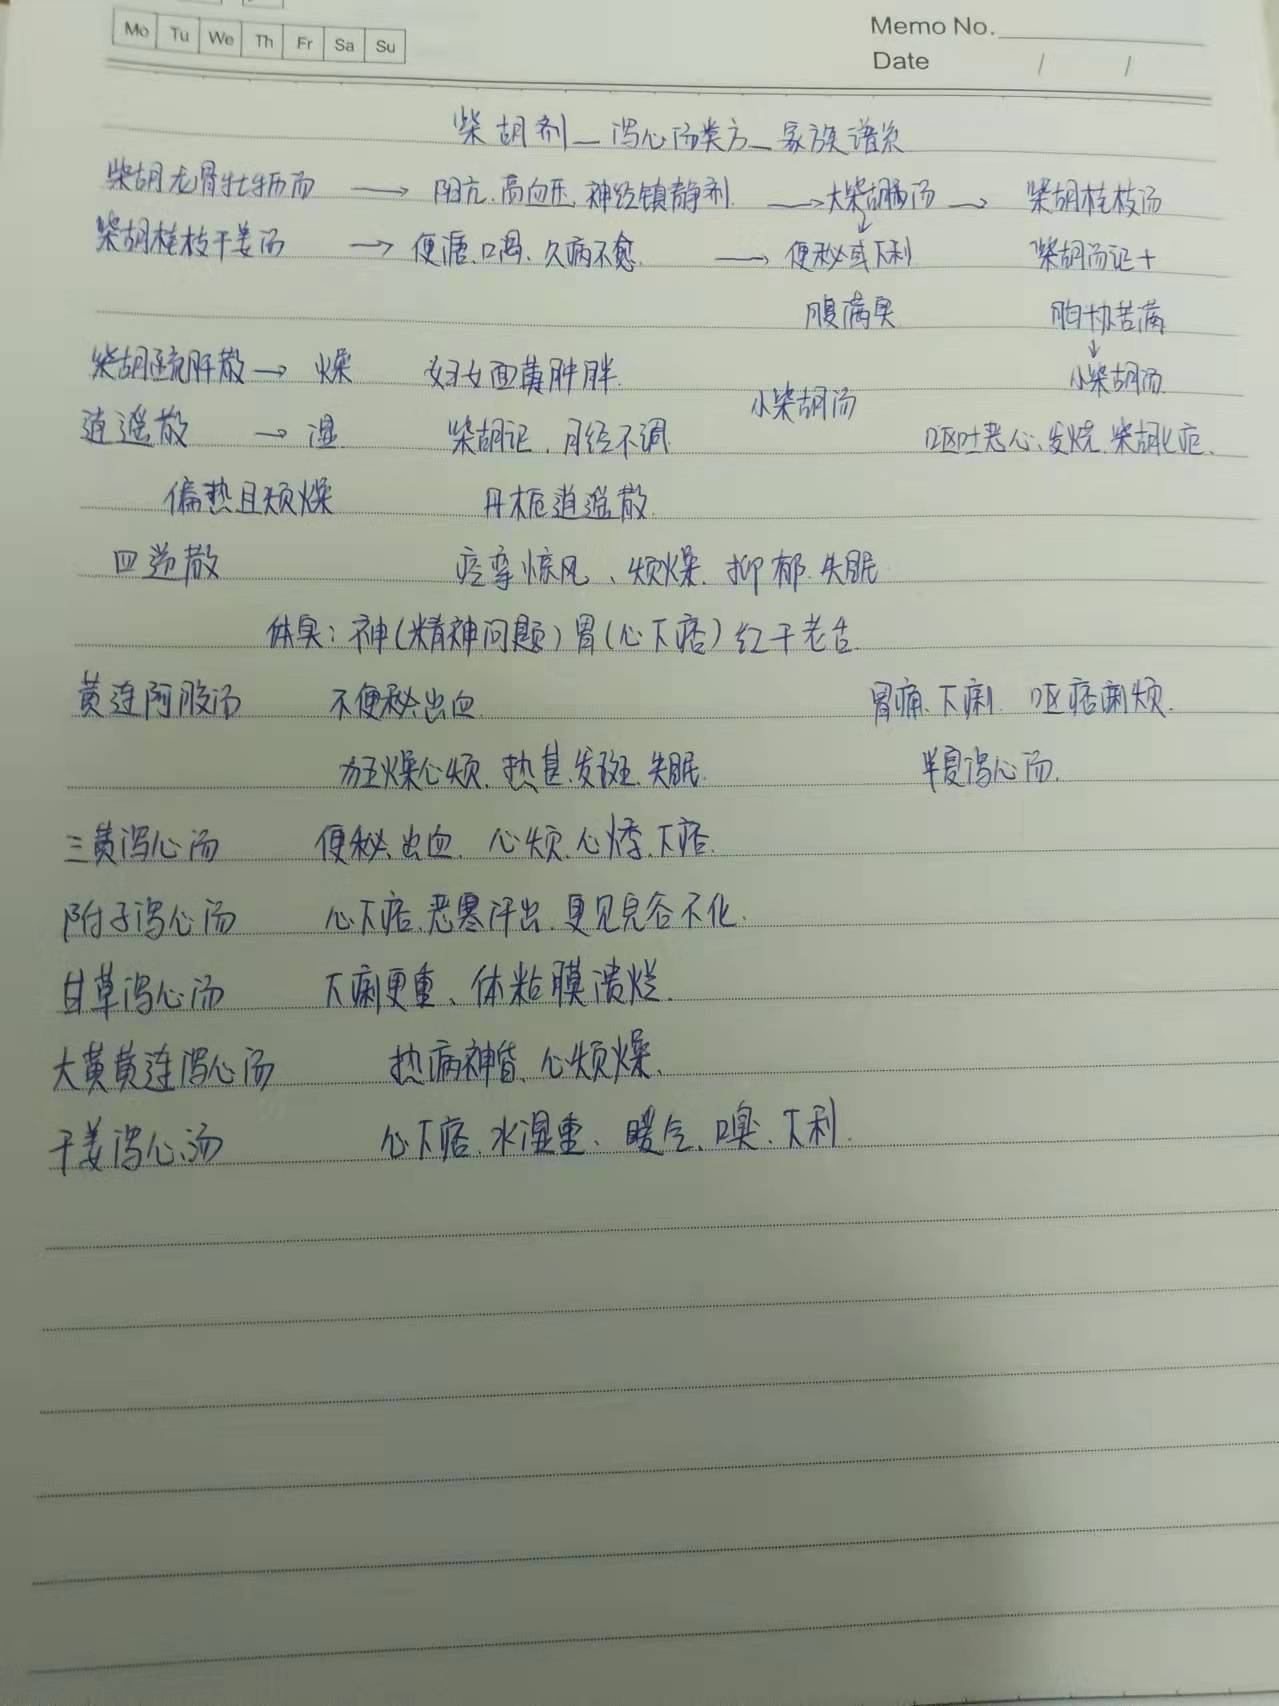 Mo Tu We Th Fr Sa Su
Memo No.
Date / /
柴胡剂—泻心汤类方—家族谱系
柴胡龙骨牡蛎汤 → 阳亢、高血压、神经镇静剂. → 大柴胡汤 → 柴胡桂枝汤
柴胡桂枝干姜汤 → 便溏、口渴、久病不愈. → 便秘或下利 柴胡汤证+
腹满実 胸协苦满
柴胡疏肝散 → 燥 妇女面黄肿胖. ↓
小柴胡汤 小柴胡汤
逍遥散 → 湿 柴胡证、月经不调. 呕吐恶心、发烧、柴胡化症.
偏热且烦燥 丹栀逍遥散.
四逆散 痉挛惊风、烦燥、抑郁、失眠
体実:神(精神问题)胃(心下痞)红干老舌.
黄连阿胶汤 不便秘、出血. 胃痛、下痢、呕痞痢烦.
狂燥心烦、热甚、发斑、失眠. 半夏泻心汤.
三黄泻心汤 便秘、出血、心烦、心悸、下痞.
附子泻心汤 心下痞、恶寒汗出、更见完谷不化.
甘草泻心汤 下痢更重、体粘膜溃烂.
大黄黄连泻心汤 热病神昏、心烦燥、
干姜泻心汤 心下痞、水湿重、暖气、口臭、下利.